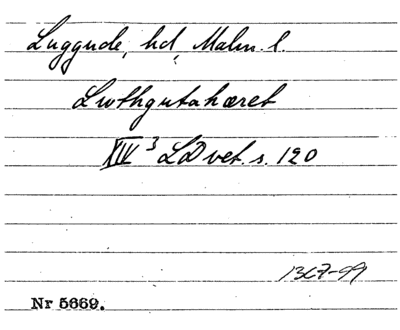 Luggude, hd, Malm. l.
Liuthgutahæret
XIV 3 LDvet. s. 120
1367-99
Nr 5669.